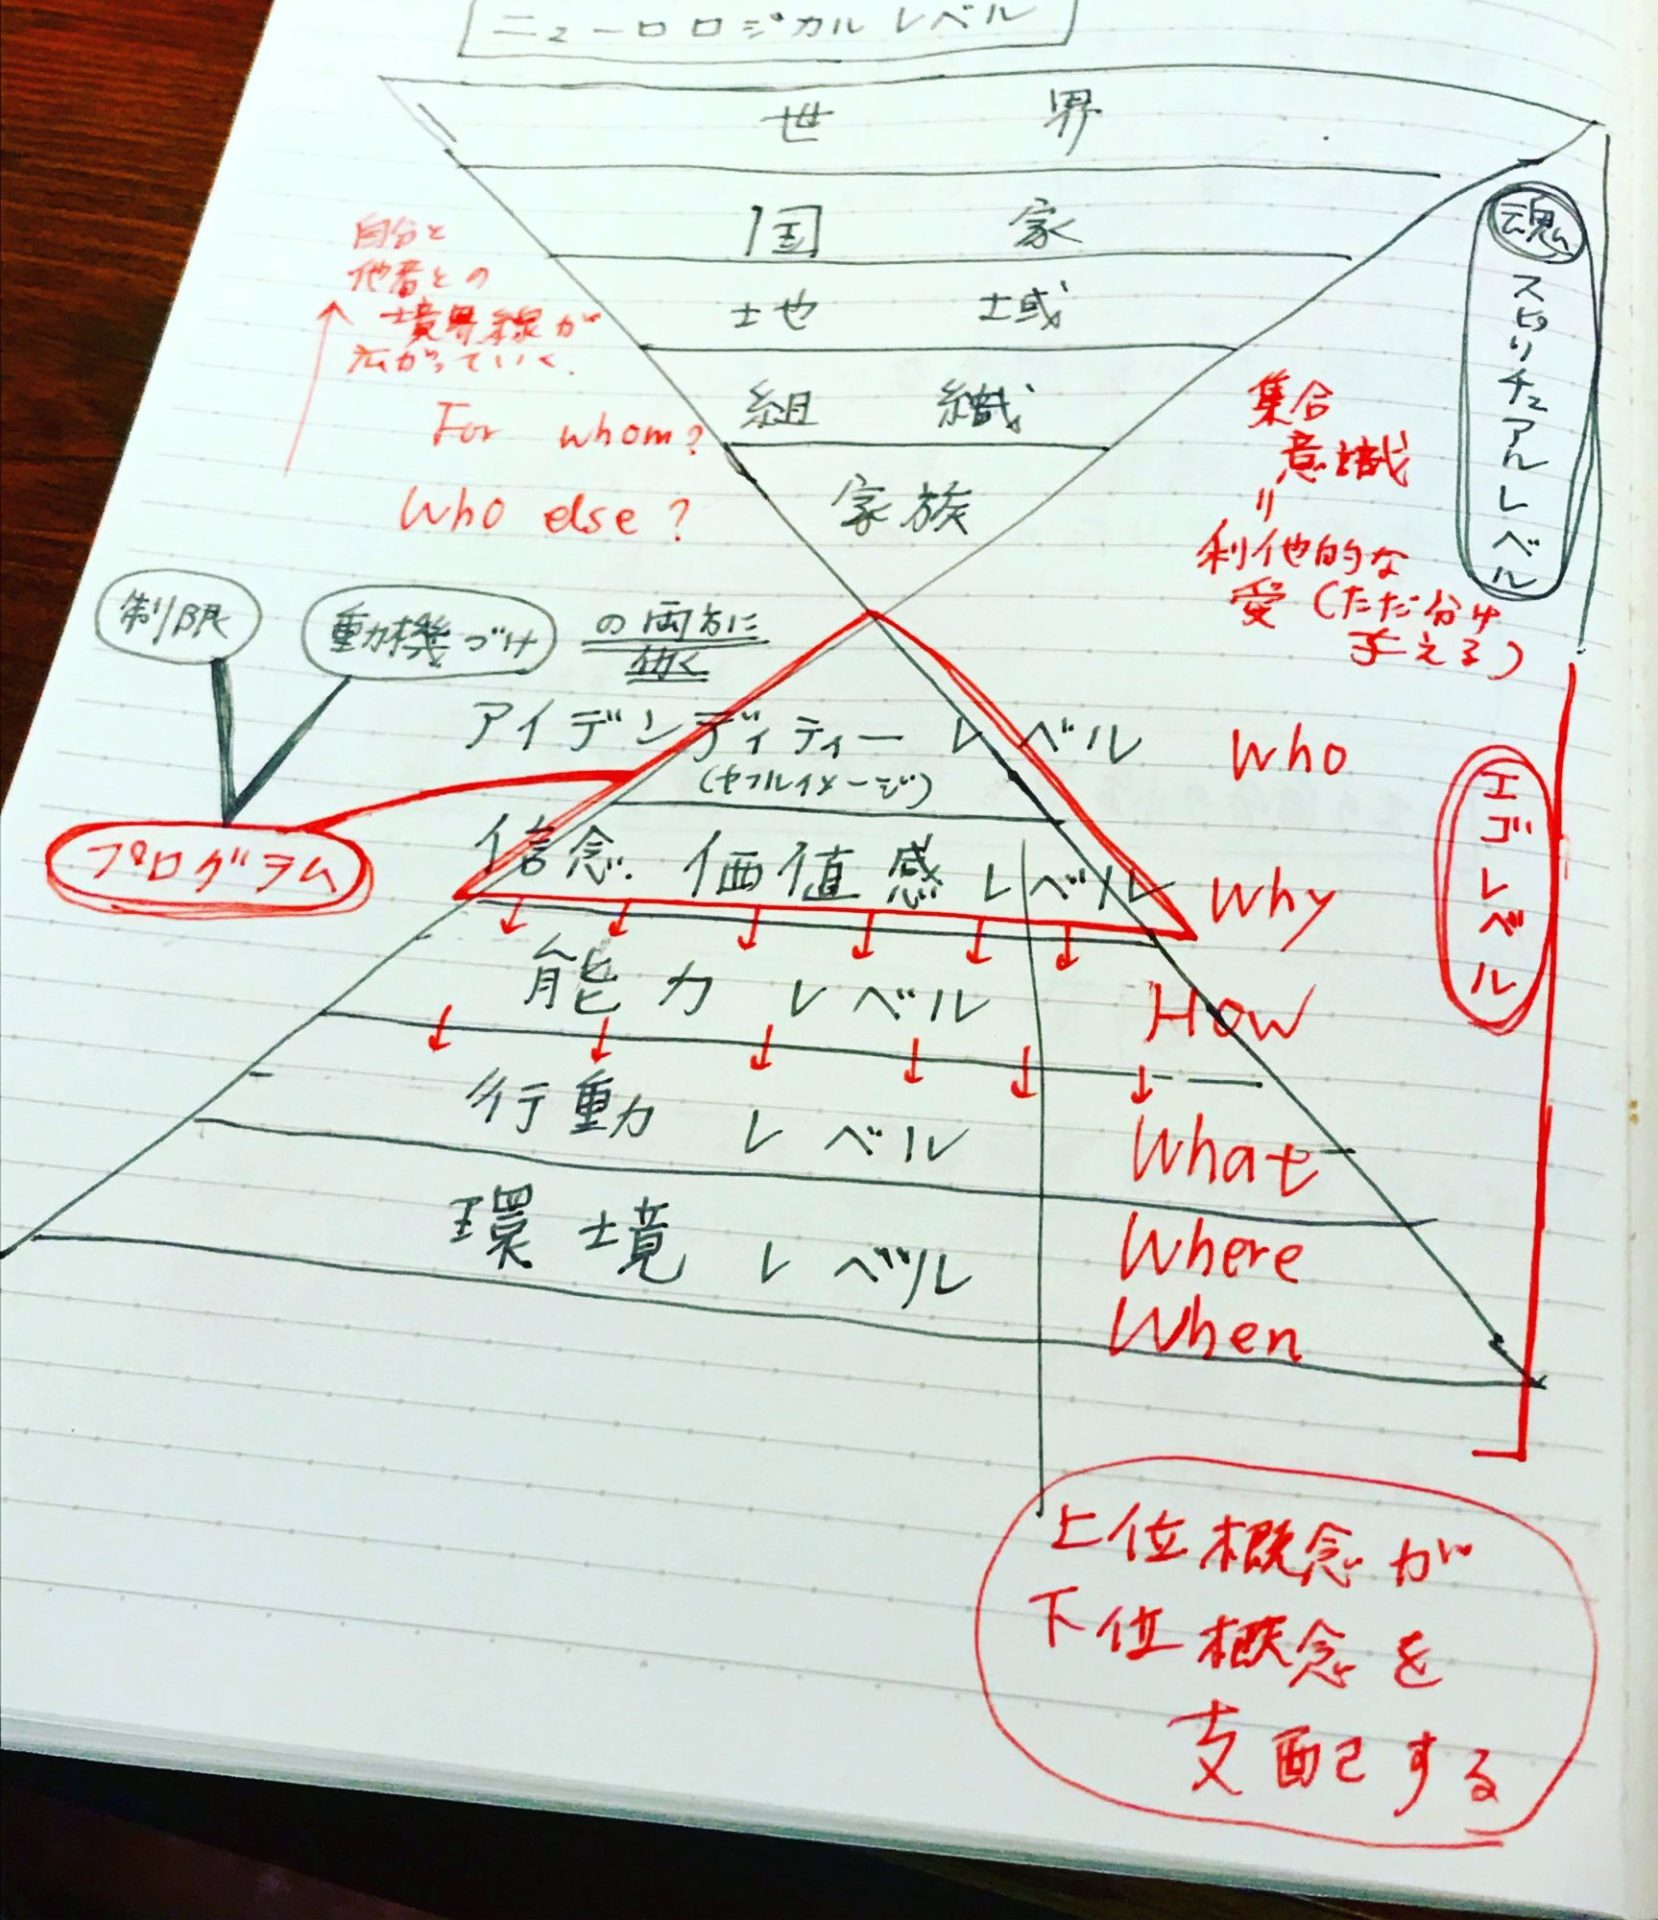 ニューロロジカルレベル
世界
国家
地域
組織
家族
自分と
他者との
境界線が
広がっていく.
For whom?
Who else?
魂
スピリチュアルレベル
集合
意識
〃
利他的な
愛(ただ分け
与える)
制限
動機づけ
の両方に
働く
プログラム
アイデンディティーレベル
(セフルイメージ)
Who
信念.価値感レベル
Why
能力レベル
How
行動レベル
What
環境レベル
Where
When
エゴレベル
上位概念が
下位概念を
支配する